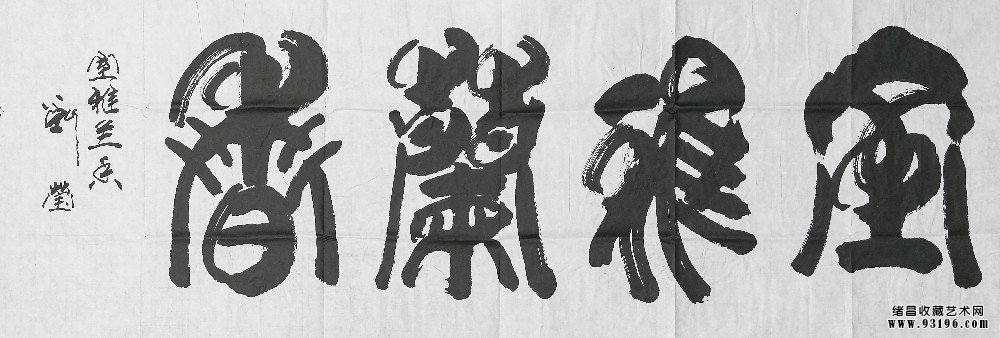 室雅蘭香
室雅兰香
瑩
绪昌收藏艺术网
www.93196.com